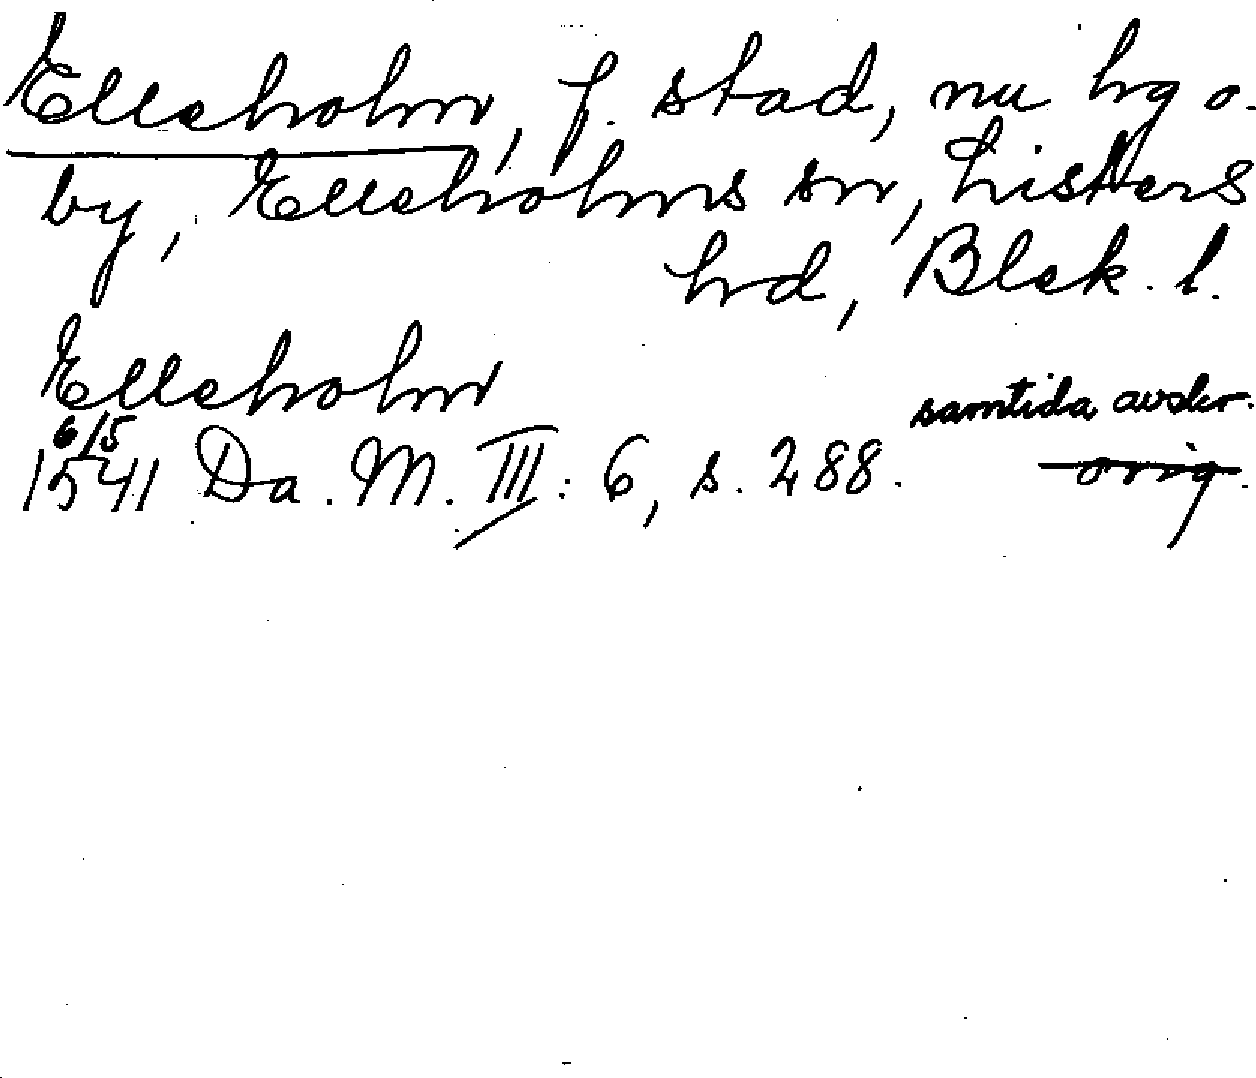 Elleholm, f. stad, nu hg o.
by, Elleholms sn, Listers
hrd, Blek. l.
Elleholm
samtida avskr.
6/5
1541 Da. M. III: 6, s. 288. orig.